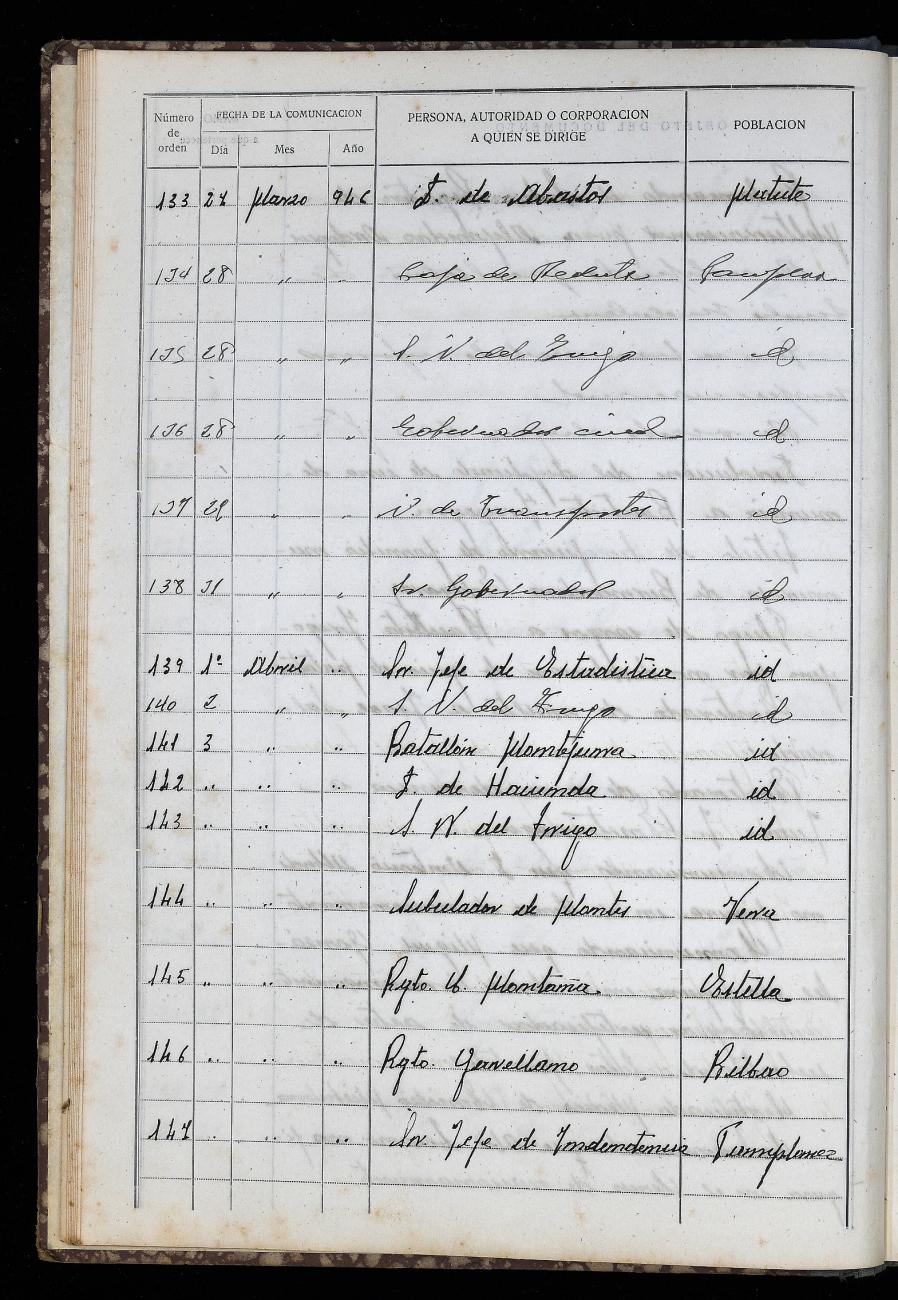 Número de orden FECHA DE LA COMUNICACION PERSONA, AUTORIDAD O CORPORACION A QUIEN SE DIRIGE POBLACION
Día Mes Año
133 27 Marzo 946 J. de Abastos
134 28 " " Caja de Recluta Pamplona
135 28 " " S. N. del Trigo id
136 28 " " Gobernador civil id
137 29 " " J. de Transportes id
138 31 " " Sr. Gobernador id
139 1º Abril " Sr. Jefe de Estadistica id
140 2 " " S. N. del Trigo id
141 3 " " Batallón Montejurra id
142 " " " J. de Hacienda id
143 " " " S. N. del Trigo id
144 " " " de Montes Vera
145 " " " Rgto. Montaña Estella
146 " " " Rgto. Garellano Bilbao
147 " " " Sr. Jefe de Indendencia